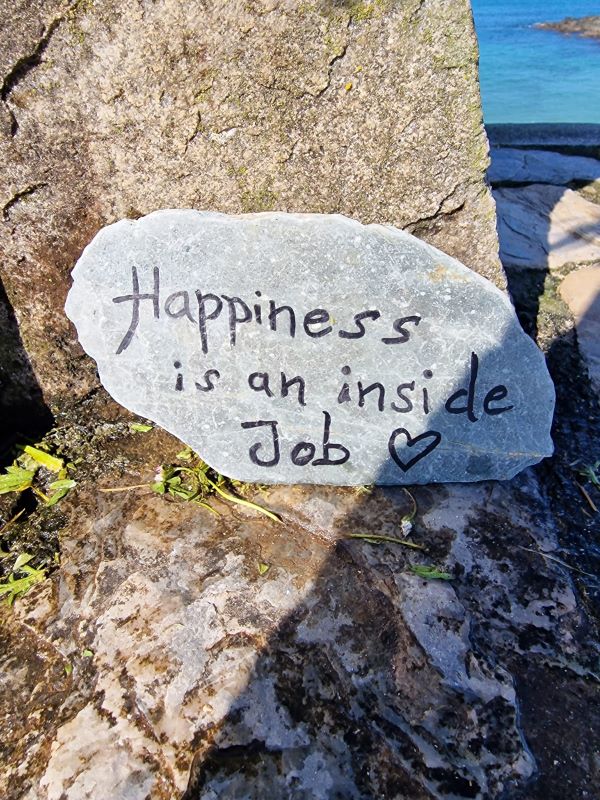 Happiness
is an inside
Job ♡